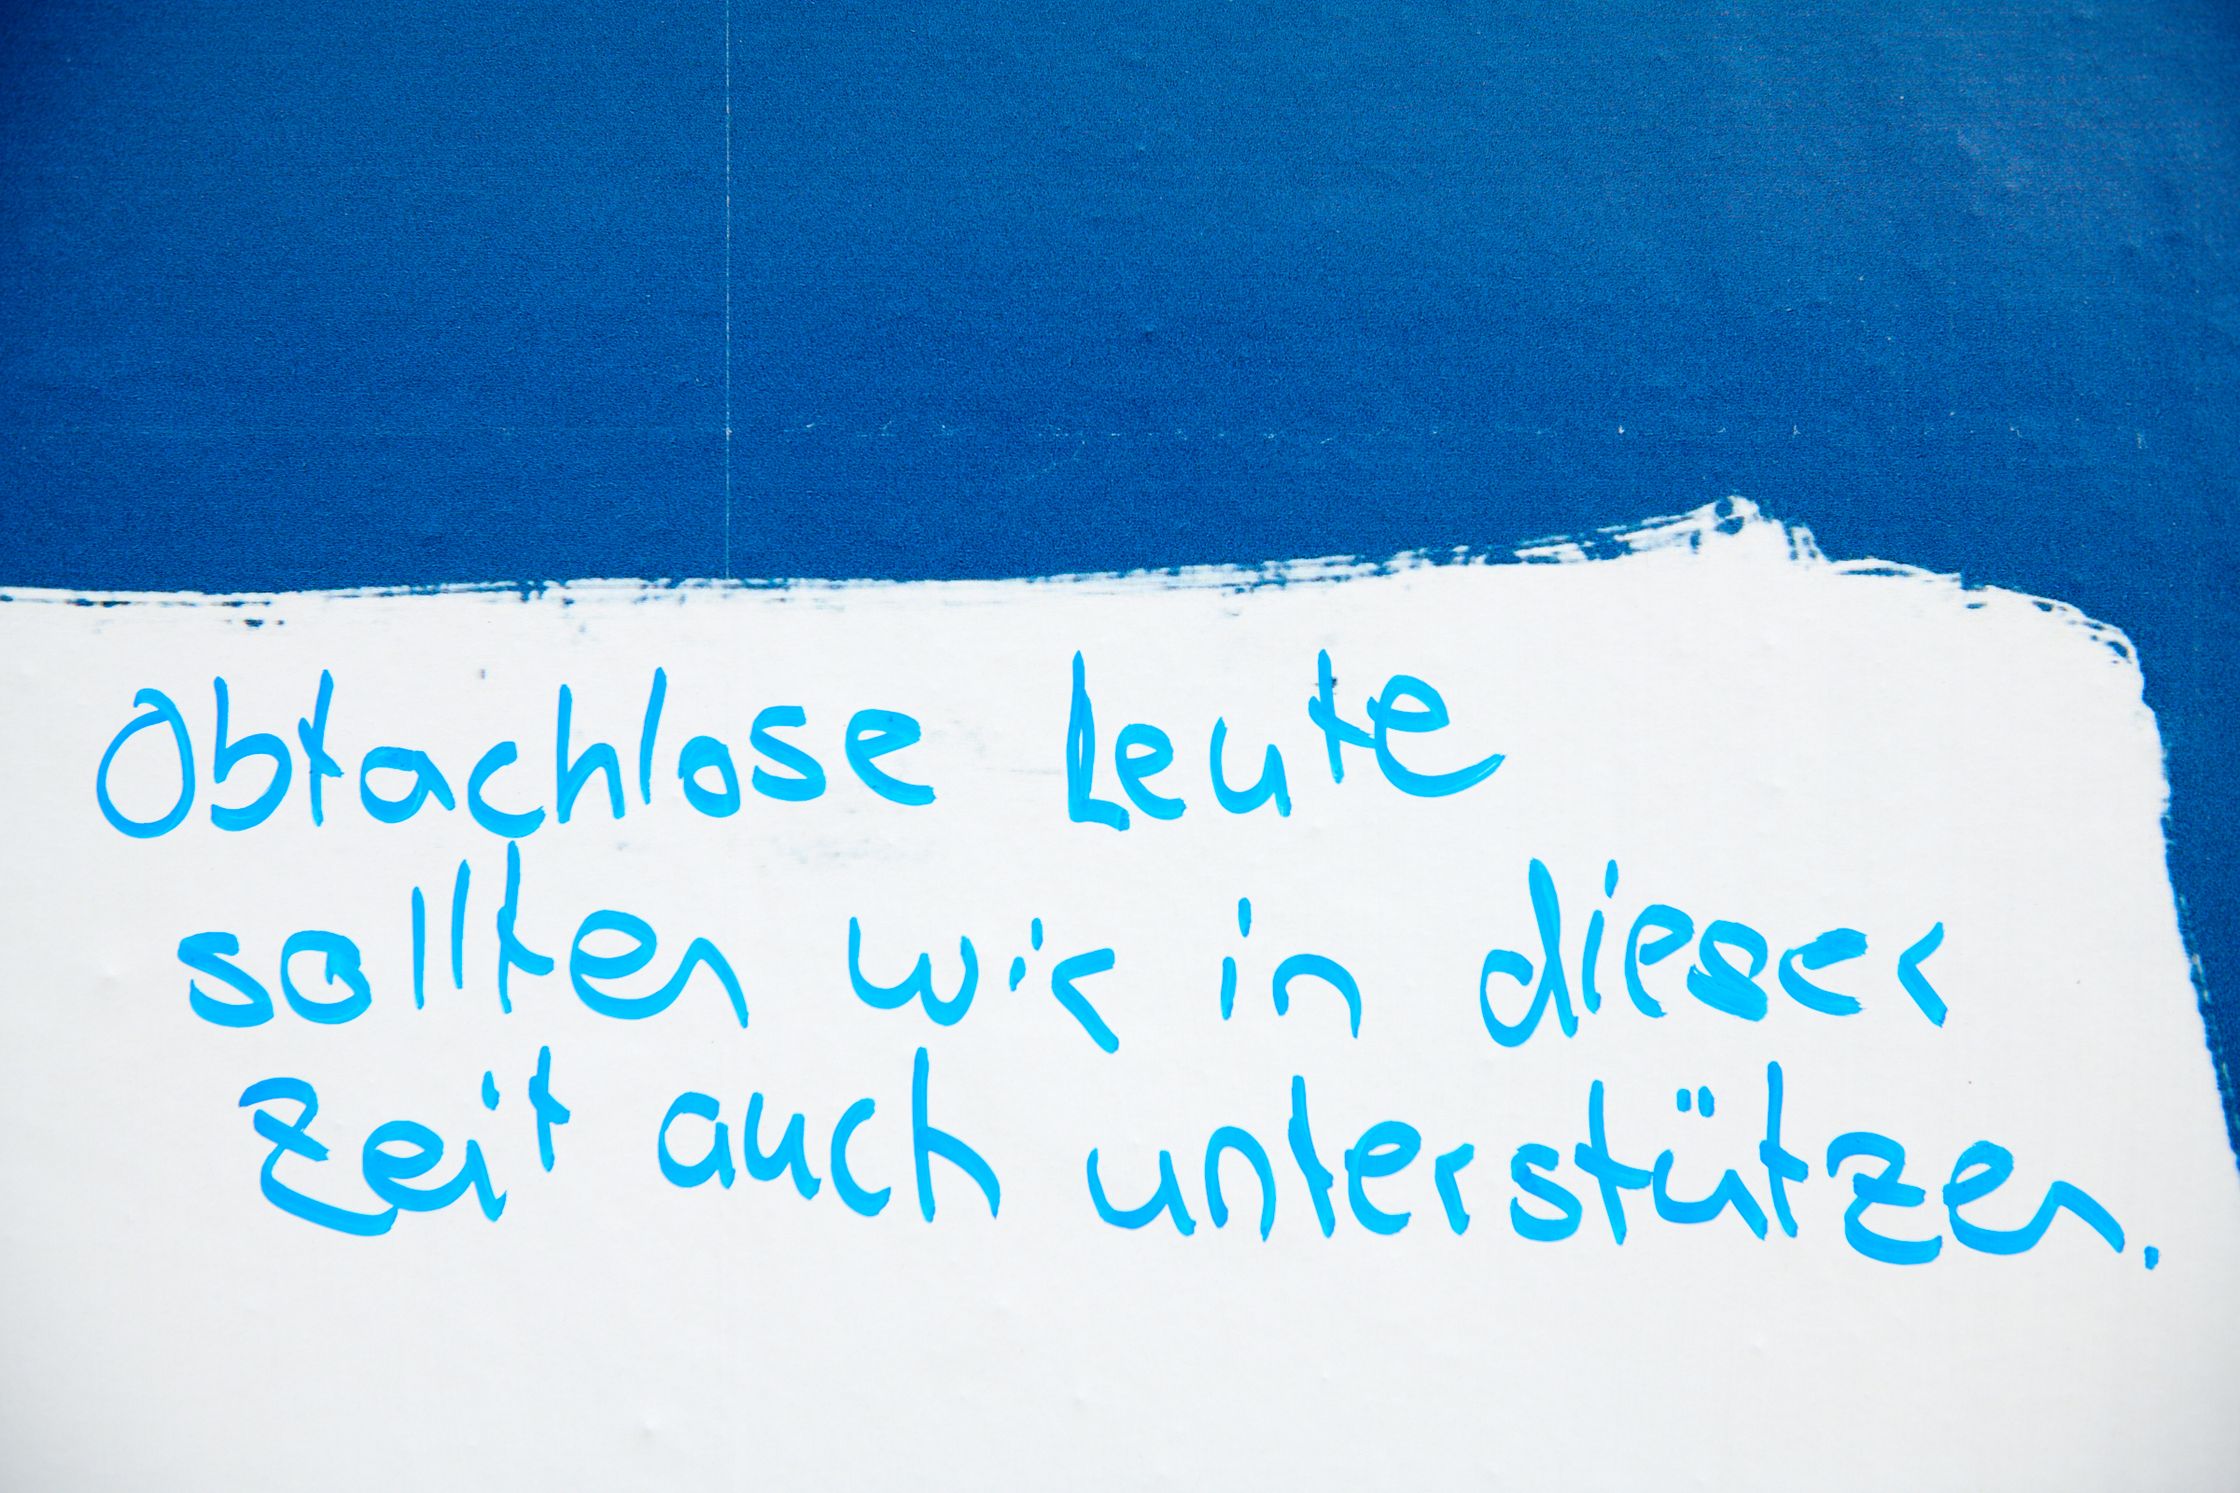 Obtachlose Leute
sollten wir in dieser
Zeit auch unterstützen.